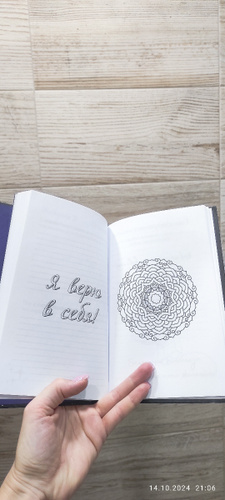 Я верю
в себя!
14.10.2024 21:06